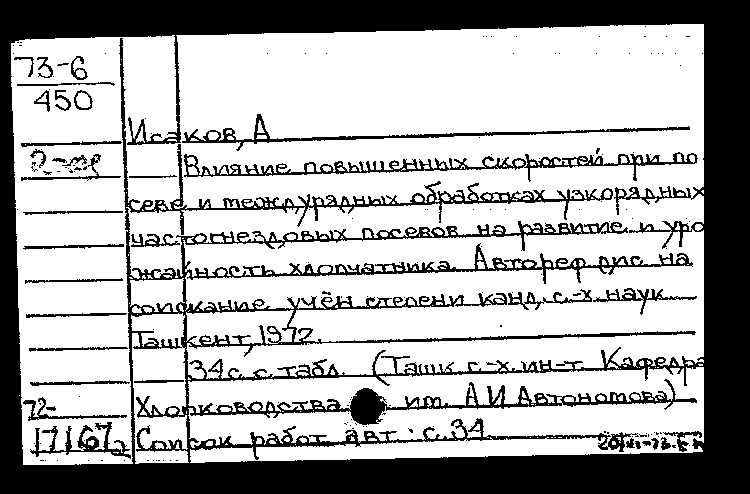 73-6
450
Исаков, А
2-
Влияние повышенных скоростей при по
севе и междурядных обработках узкорядных
частогнездовых посевов на развитие и уро
жайность хлопчатника. Автореф дис на
соискание учён степени канд. с.-х. наук
Ташкент, 1972.
34 с. с табл. (Ташк. с.-х. ин-т. Кафедра
72-
Хлопководства им. А И Автономова)
17167
Список работ авт.: с. 34